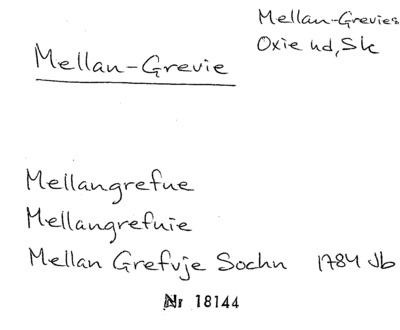 Mellan-Grevies
Oxie hd, Sk
Mellan-Grevie
Mellangrefue
Mellangrefuie
Mellan Grefvje Sochn 1784 Jb
Nr 18144